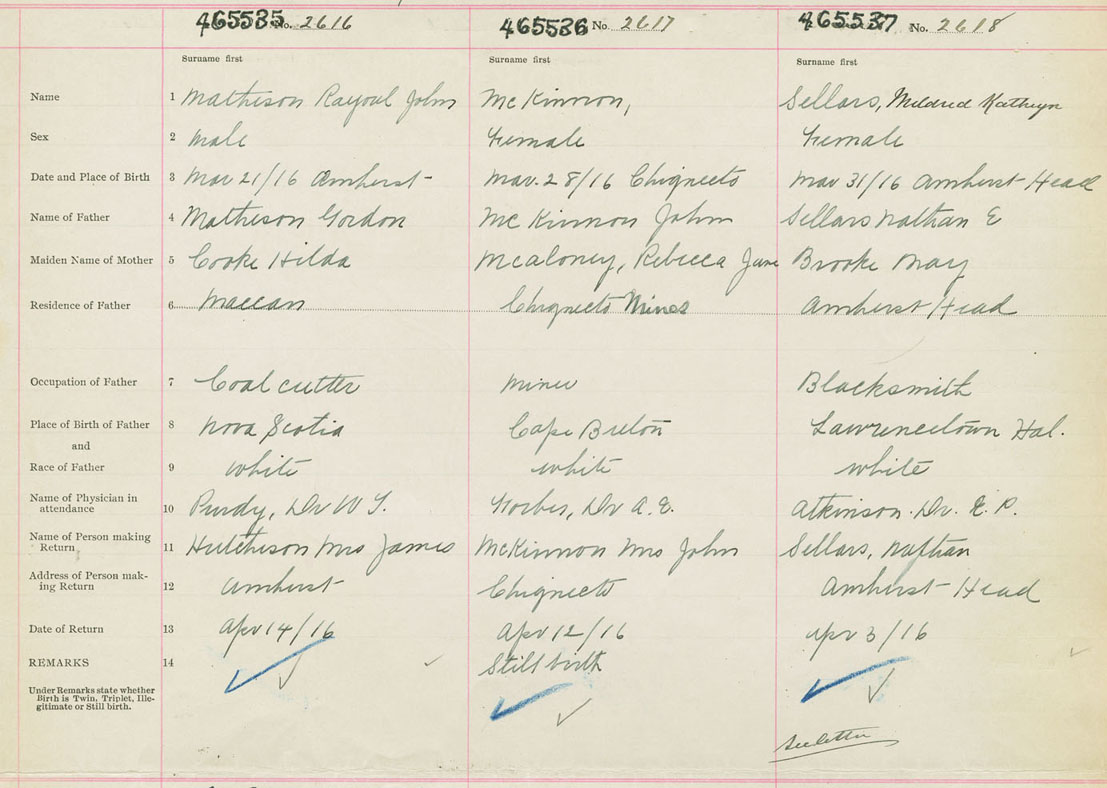 465535 No. 2616 465536 No. 2617 465537 No. 2618
Surname first Surname first Surname first
Name 1 Matheson Rayoul John McKinnon, Sellars, Mildred Kathryn
Sex 2 Male Female Female
Date and Place of Birth 3 Mar 21/16 Amherst Mar. 28/16 Chignecto Mar 31/16 Amherst Head
Name of Father 4 Matheson Gordon McKinnon John Sellars Nathan E
Maiden Name of Mother 5 Cooke Hilda McAloney, Rebecca Jane Brooke May
Residence of Father 6 Maccan Chignecto Mines Amherst Head
Occupation of Father 7 Coal cutter Miner Blacksmith
Place of Birth of Father 8 Nova Scotia Cape Breton Lawrencetown Hal.
and
Race of Father 9 white white white
Name of Physician in
attendance 10 Purdy, Dr W T. Forbes, Dr A. E. Atkinson. Dr. E. P.
Name of Person making
Return 11 Hutcheson Mrs James McKinnon Mrs John Sellars, Nathan
Address of Person mak-
ing Return 12 Amherst Chignecto Amherst Head
Date of Return 13 Apr 14/16 Apr 12/16 Apr 3/16
REMARKS 14 Still birth
Under Remarks state whether
Birth is Twin, Triplet, Ille-
gitimate or Still birth.
See letter